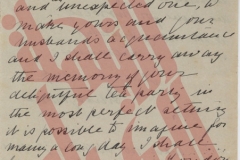 and unexpected one, to
make yours and your
husbands acquaintance
and I shall carry away
the memory of your
delightful tea party in
the most perfect setting
it is possible to imagine for
many a long day. I shall